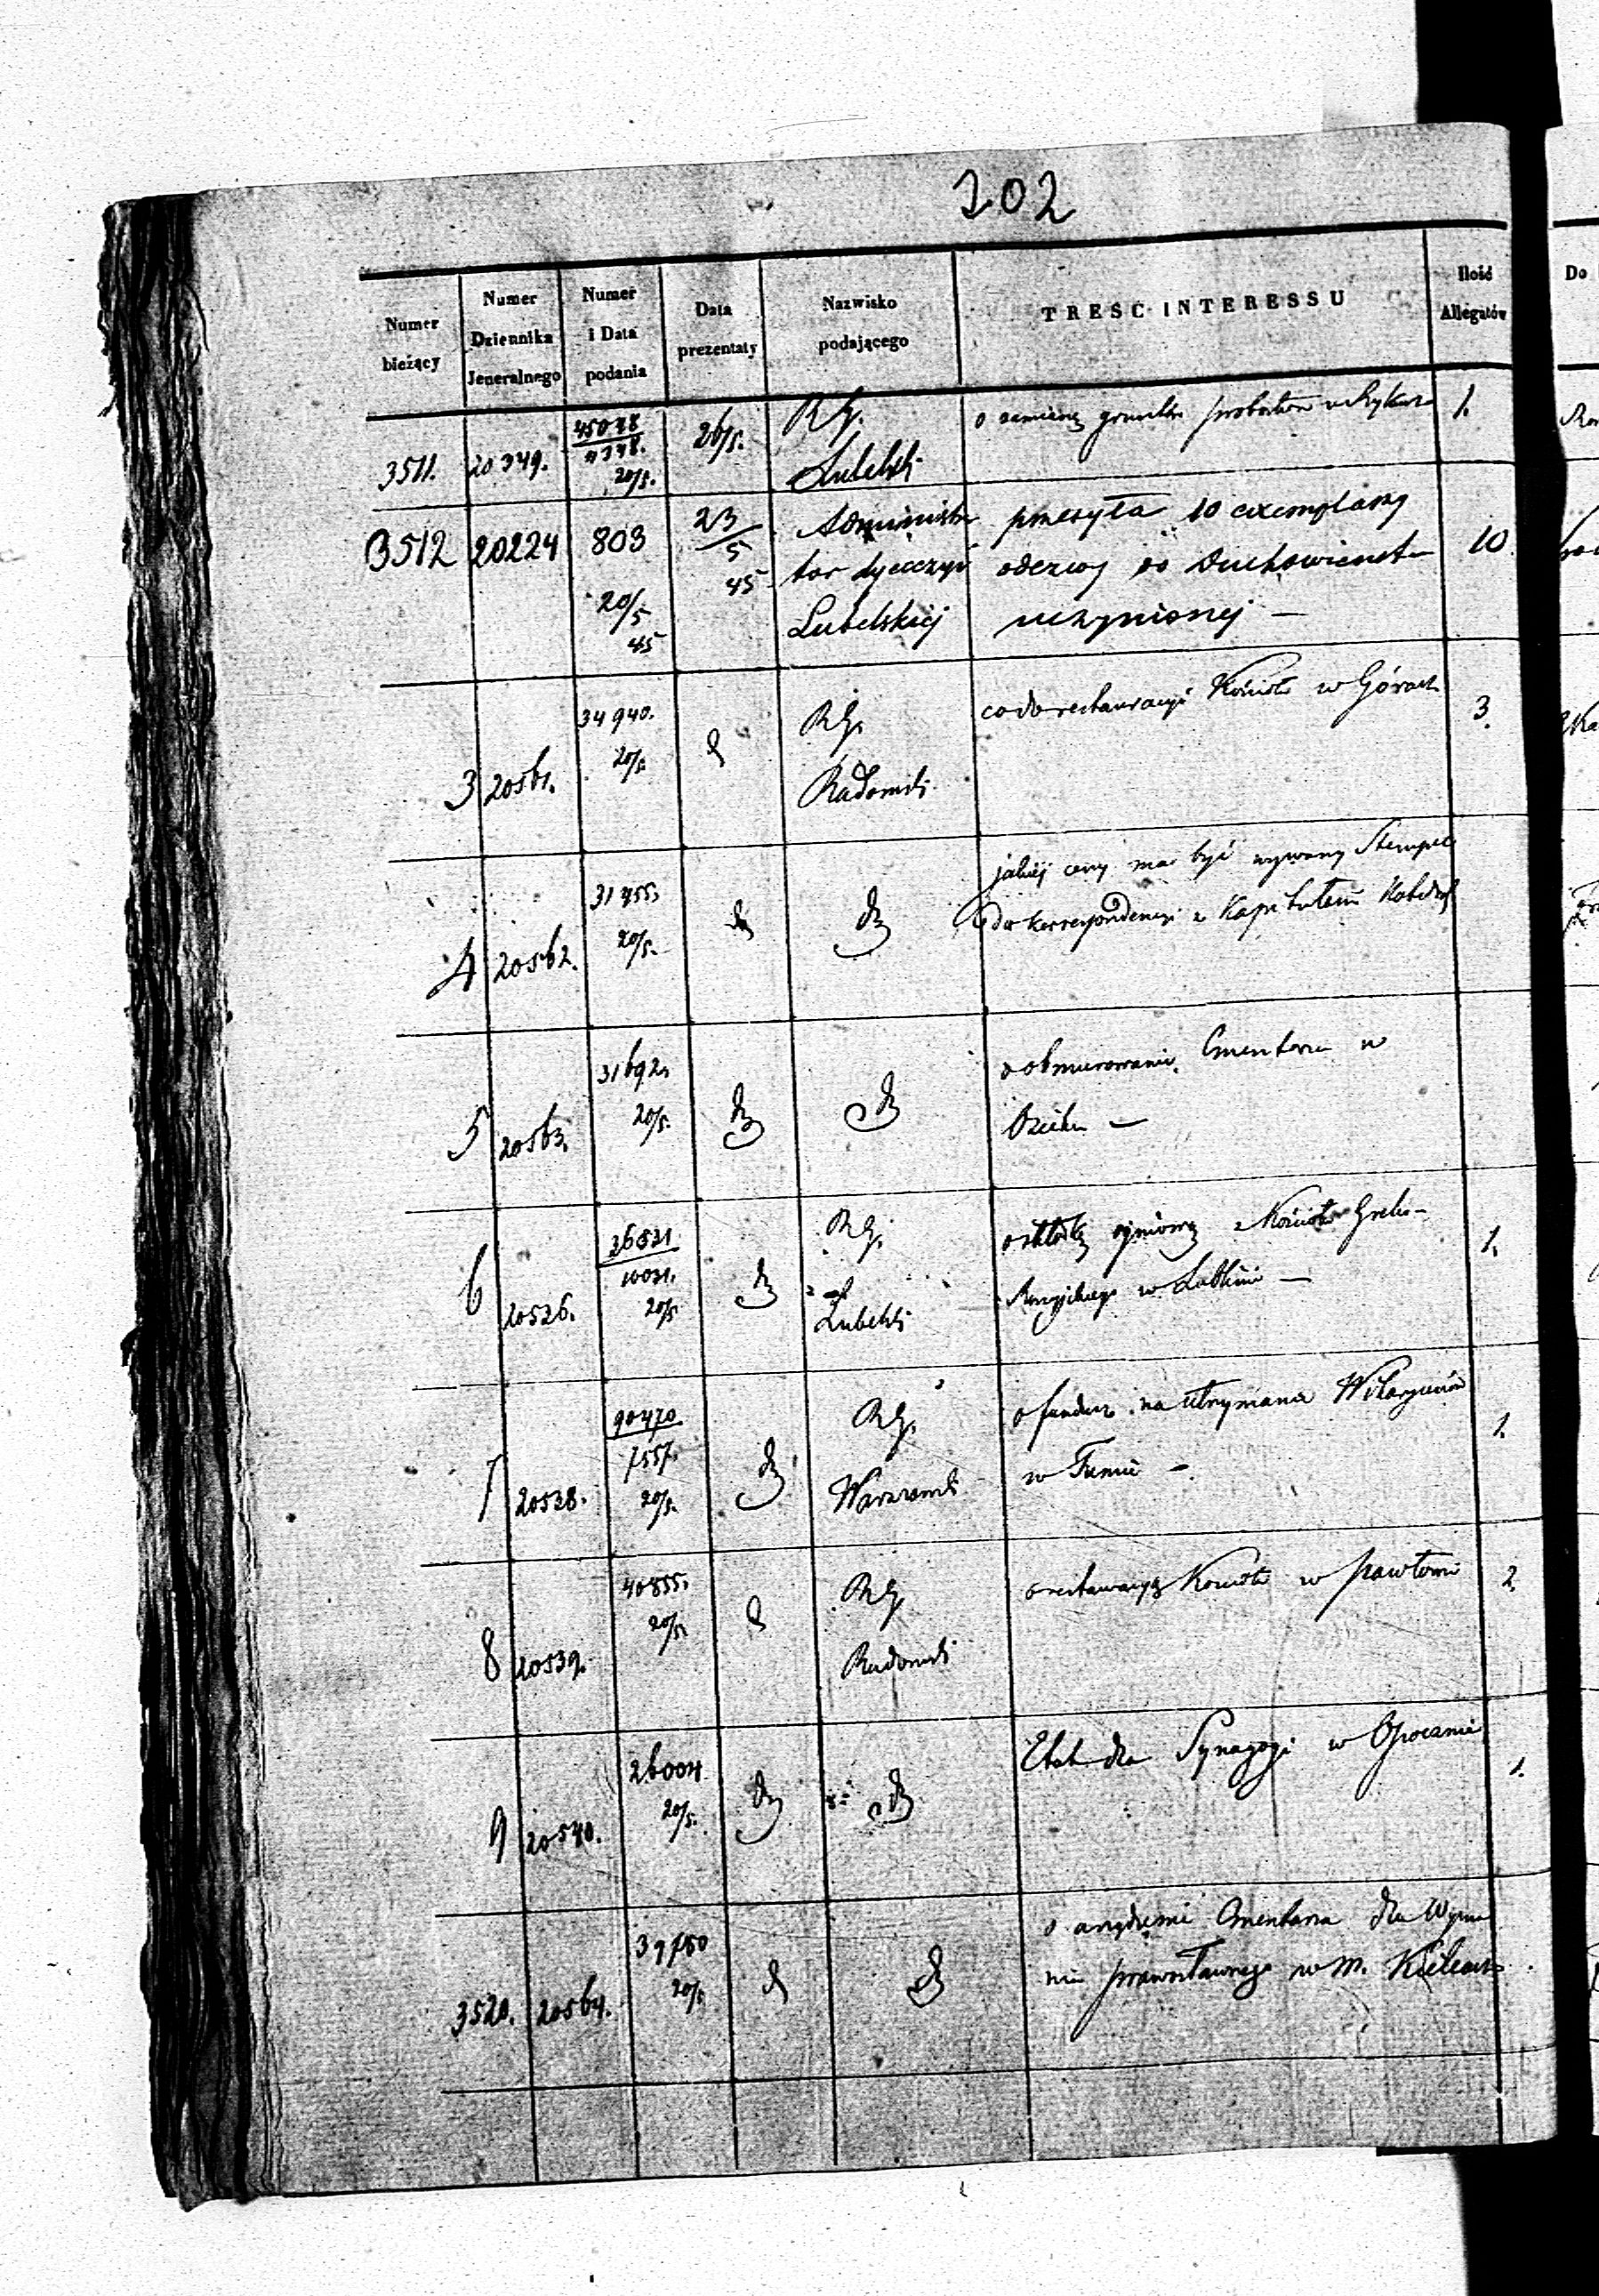 202
Numer bieżący
Numer Dziennika Jeneralnego
Numer i Data podania
Data prezentaty
Nazwisko podającego
TREŚC INTERESSU
Ilość Allegatów
Do
3511. 20349. 45078 20/5. 26/5. RG. Lubelski
o zamianę gruntów probostwa w Ryk
1.
3512 20224 803 20/5 45 23/5 45
Administra
tor dyecezyi
Lubelskiej
przesyła 10 exemplarzy
odezwy do Duchowieńst
uczynionej —
10
3 20561. 34940. 20/5. d RG. Radomski
co do restauracyi Kościoła w Górach
3.
4 20562. 31455. 20/5. d
jakiej ceny ma być używany Stempel
do korrespondencyi z Kapitułami
5 20563. 31692. 20/5.
o obmurowanie Cmentarza w
Osieku —
6 20526. 26821 10031. 20/5 RG. Lubelski
o składkę ogniową z Kościoła Greko-
Rossyjskiego w Lublinie —
1.
7 20538. 90470 7557. 20/5. RG. Warszawski
o fundusz na utrzymanie Wikaryuszów
w Tumie —
1.
8 20539. 40855. 20/5. d RG. Radomski
o restauracyą Kościoła w Pawłowie
2.
9 20540. 26004 20/5.
Etat dla Synagogi w Opocznie
1.
3520. 20564. 39780 20/5 d
o urządzenie Cmentarza dla Wyzna
nia prawosławnego w m. Kielcach